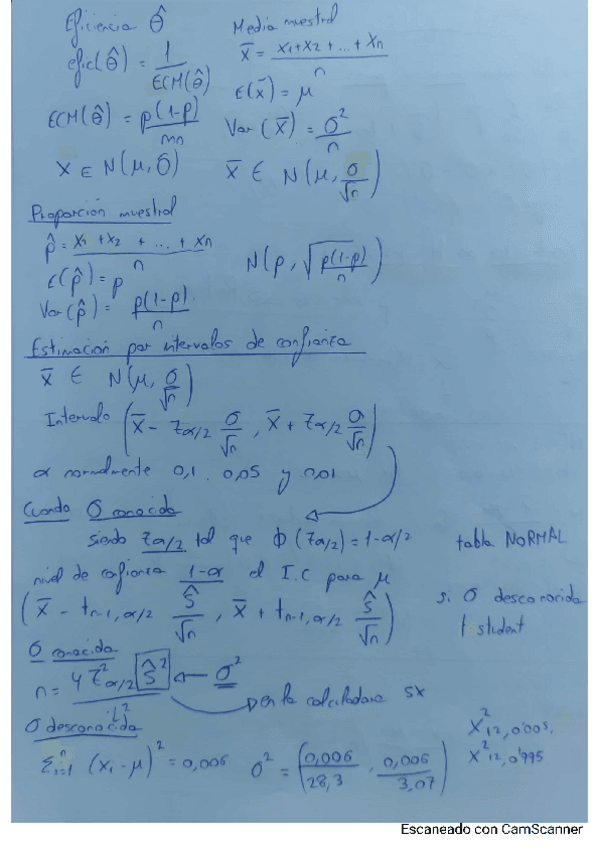 Eficiencia θ̂
efic(θ̂) = 1 / ECM(θ̂)
ECM(θ̂) = p(1-p) / mn
X ∈ N(μ, σ)
Media muestral
x̄ = x1+x2+...+xn / n
E(x̄) = μ
Var(x̄) = σ² / n
x̄ ∈ N(μ, σ/√n)
Proporción muestral
p̂ = x1+x2 + ... + xn / n
E(p̂) = p
Var(p̂) = p(1-p) / n
N(p, √(p(1-p)/n))
Estimación por intervalos de confianza
x̄ ∈ N(μ, σ/√n)
Intervalo (x̄ - zα/2 σ/√n , x̄ + zα/2 σ/√n)
α normalmente 0,1 . 0,05 y 0,01
Cuando σ conocida
siendo zα/2 tal que Φ(zα/2) = 1-α/2 tabla NORMAL
nivel de confianza 1-α el I.C para μ
(x̄ - tn-1, α/2 ŝ/√n , x̄ + tn-1, α/2 ŝ/√n) si σ desconocida
t student
σ conocida
n = 4 z²α/2 ŝ² / L² ← σ²
en la calculadora sx
σ desconocida
Σⁿi=1 (xi - μ)² = 0,006 σ² = (0,006/28,3 , 0,006/3,07)
X²12, 0'005,
X²12, 0'995
Escaneado con CamScanner